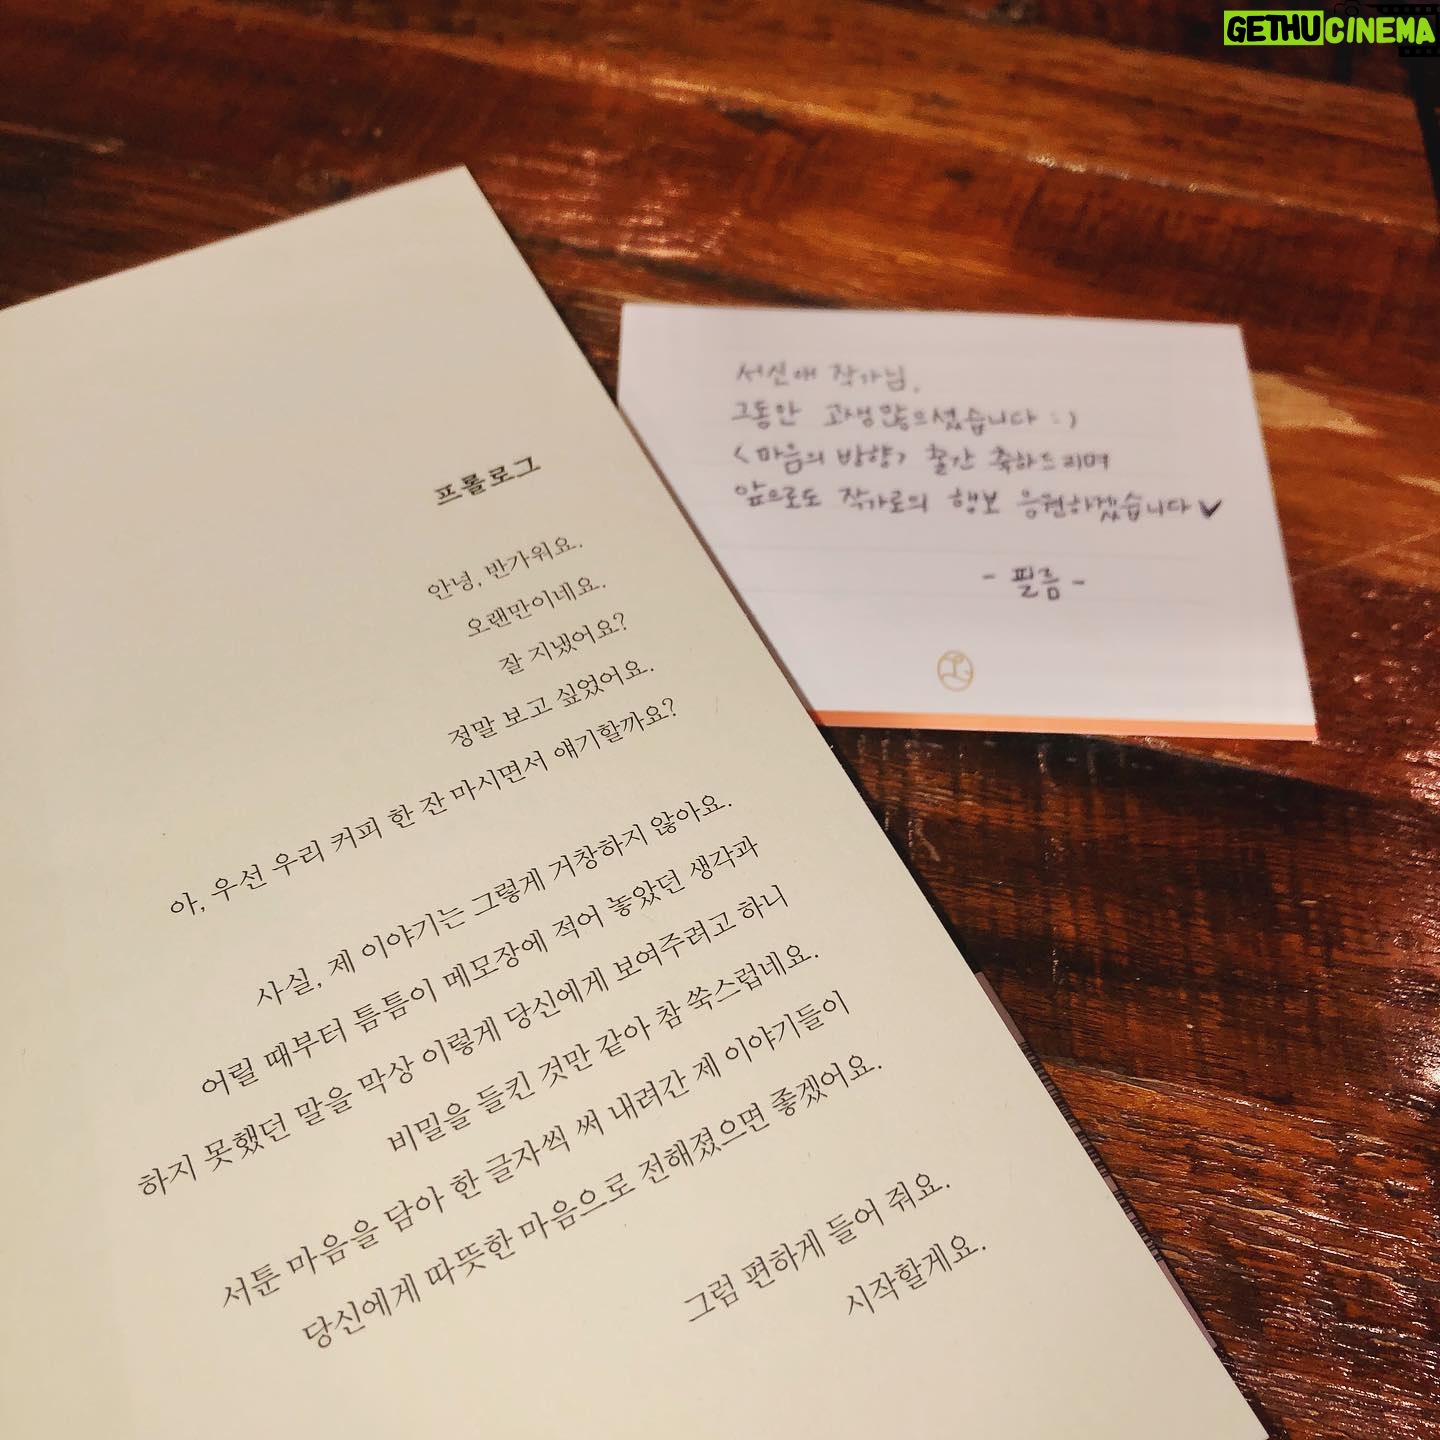 GETHUCINEMA
프롤로그
안녕, 반가워요.
오랜만이네요.
잘 지냈어요?
정말 보고 싶었어요.
아, 우선 우리 커피 한 잔 마시면서 얘기할까요?
사실, 제 이야기는 그렇게 거창하지 않아요.
어릴 때부터 틈틈이 메모장에 적어 놓았던 생각과
하지 못했던 말을 막상 이렇게 당신에게 보여주려고 하니
비밀을 들킨 것만 같아 참 쑥스럽네요.
서툰 마음을 담아 한 글자씩 써 내려간 제 이야기들이
당신에게 따뜻한 마음으로 전해졌으면 좋겠어요.
그럼 편하게 들어 줘요.
시작할게요.
서신애 작가님,
그동안 고생많으셨습니다 :)
<마음의 방향> 출간 축하드리며
앞으로도 작가로의 행보 응원하겠습니다
- 필름 -